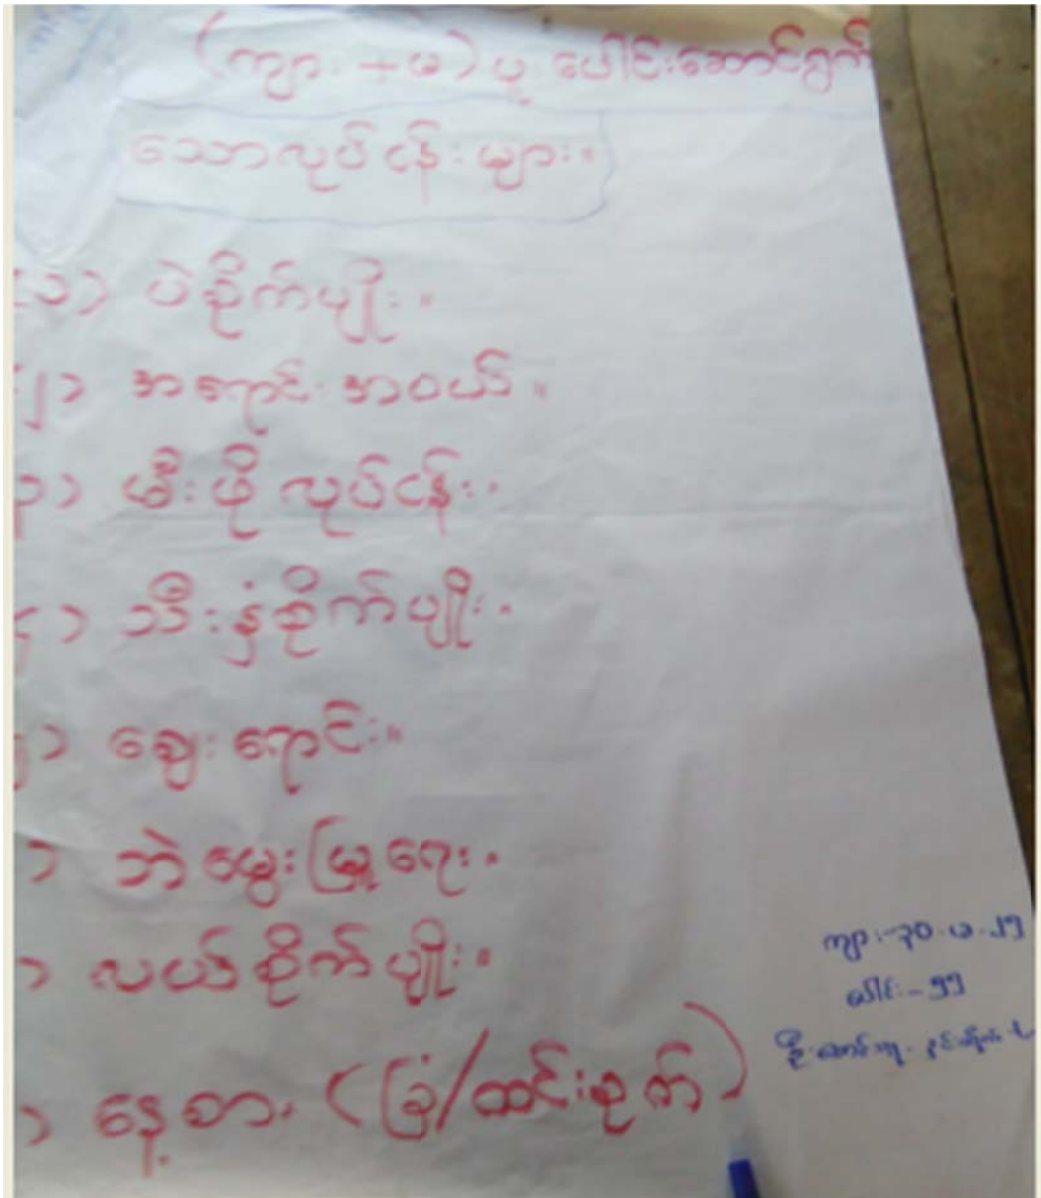 (ကျား + မ) ပူးပေါင်းဆောင်ရွက်
သောလုပ်ငန်းများ။
(၁) ပဲစိုက်ပျိုး။
(၂) အရောင်းအဝယ်။
၃) မီးဖိုလုပ်ငန်း။
၄) သီးနှံစိုက်ပျိုး။
၅) ဈေးရောင်း။
) ဘဲမွေးမြူရေး။
) လယ်စိုက်ပျိုး။
) နေ့စား (ခြံ/ထင်းခုတ်)
ကျား-၃၀ မ-၂၅
ပေါင်း-၅၅